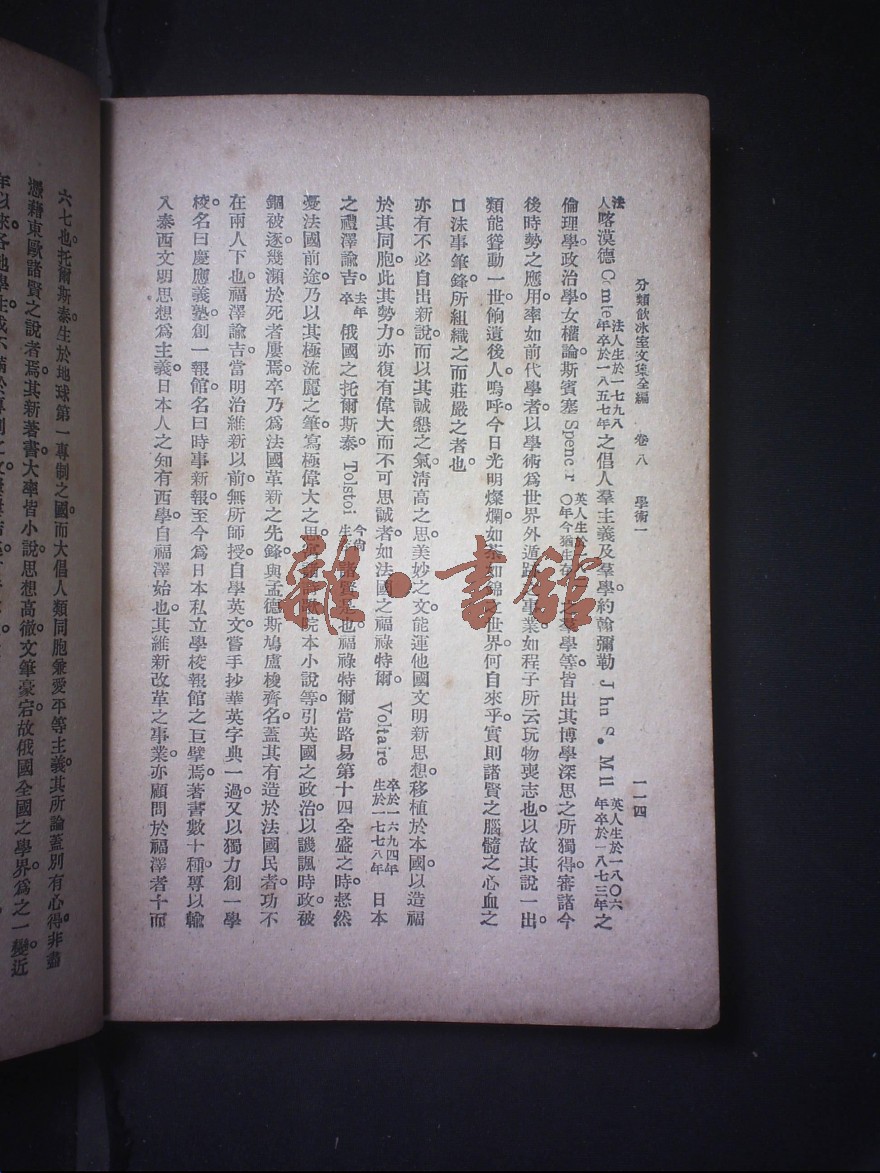 分類飲冰室文集全編 卷八 學術一 一一四
法人喀謨德 Comte 法人生於一七九八年卒於一八五七年之倡人羣主義及羣學。約翰彌勒 Jhn S. Mll 英人生於一八〇六年卒於一八七三年之
倫理學。政治學。女權論。斯賓塞 Spencer 英人生於 〇年今猶生存 之羣學等。皆出其博學深思之所獨得。審諸今
後時勢之應用。率如前代學者。以學術爲世界外遁跡之事業。如程子所云玩物喪志也。以故其說一出。
類能聳動一世。餉遺後人。嗚呼。今日光明燦爛。如荼如錦之世界。何自來乎。實則諸賢之腦髓之心血之
口沫事筆鋒所組織之而莊嚴之者也。
亦有不必自出新說。而以其誠懇之氣。清高之思。美妙之文。能運他國文明新思想。移植於本國。以造福
於其同胞。此其勢力。亦復有偉大而不可思誠者。如法國之福祿特爾。 Voltaire 卒於一六九四年生於一七七八年 日本
之禮澤諭吉。 去年卒 俄國之托爾斯泰。 Tolstoi 今尚生存 諸賢是也。福祿特爾當路易第十四全盛之時。惄然
憂法國前途。乃以其極流麗之筆。寫極偉大之思。寓諸詩歌院本小說等。引英國之政治。以譏諷時政。被
錮被逐。幾瀕於死者屢焉。卒乃爲法國革新之先鋒。與孟德斯鳩盧梭齊名。蓋其有造於法國民者。功不
在兩人下也。福澤諭吉當明治維新以前。無所師授。自學英文。嘗手抄華英字典一過。又以獨力創一學
校。名曰慶應義塾。創一報館。名曰時事新報。至今爲日本私立學校報館之巨擘焉。著書數十種。專以輸
入泰西文明思想爲主義。日本人之知有西學。自福澤始也。其維新改革之事業。亦顧問於福澤者十而
六七也。托爾斯泰生於地球第一專制之國。而大倡人類同胞兼愛平等主義。其所論蓋別有心得。非盡
憑藉東歐諸賢之說者焉。其新著書大率皆小說。思想高徹。文筆豪宕。故俄國全國之學界爲之一變。近
年以來。各地學生
雜·書館